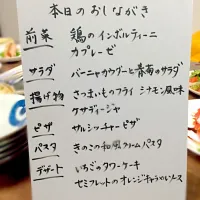 本日のおしながき
前菜 鶏のインボルティーニ
カプレーゼ
サラダ バーニャカウダーと春菊のサラダ
揚げ物 さつまいものフライ シナモン風味
ケサディージャ
ピザ サルシッチャピザ
パスタ きのこの和風クリームパスタ
デザート いちごのタワーケーキ
セミフレットのオレンジキャラメルソース